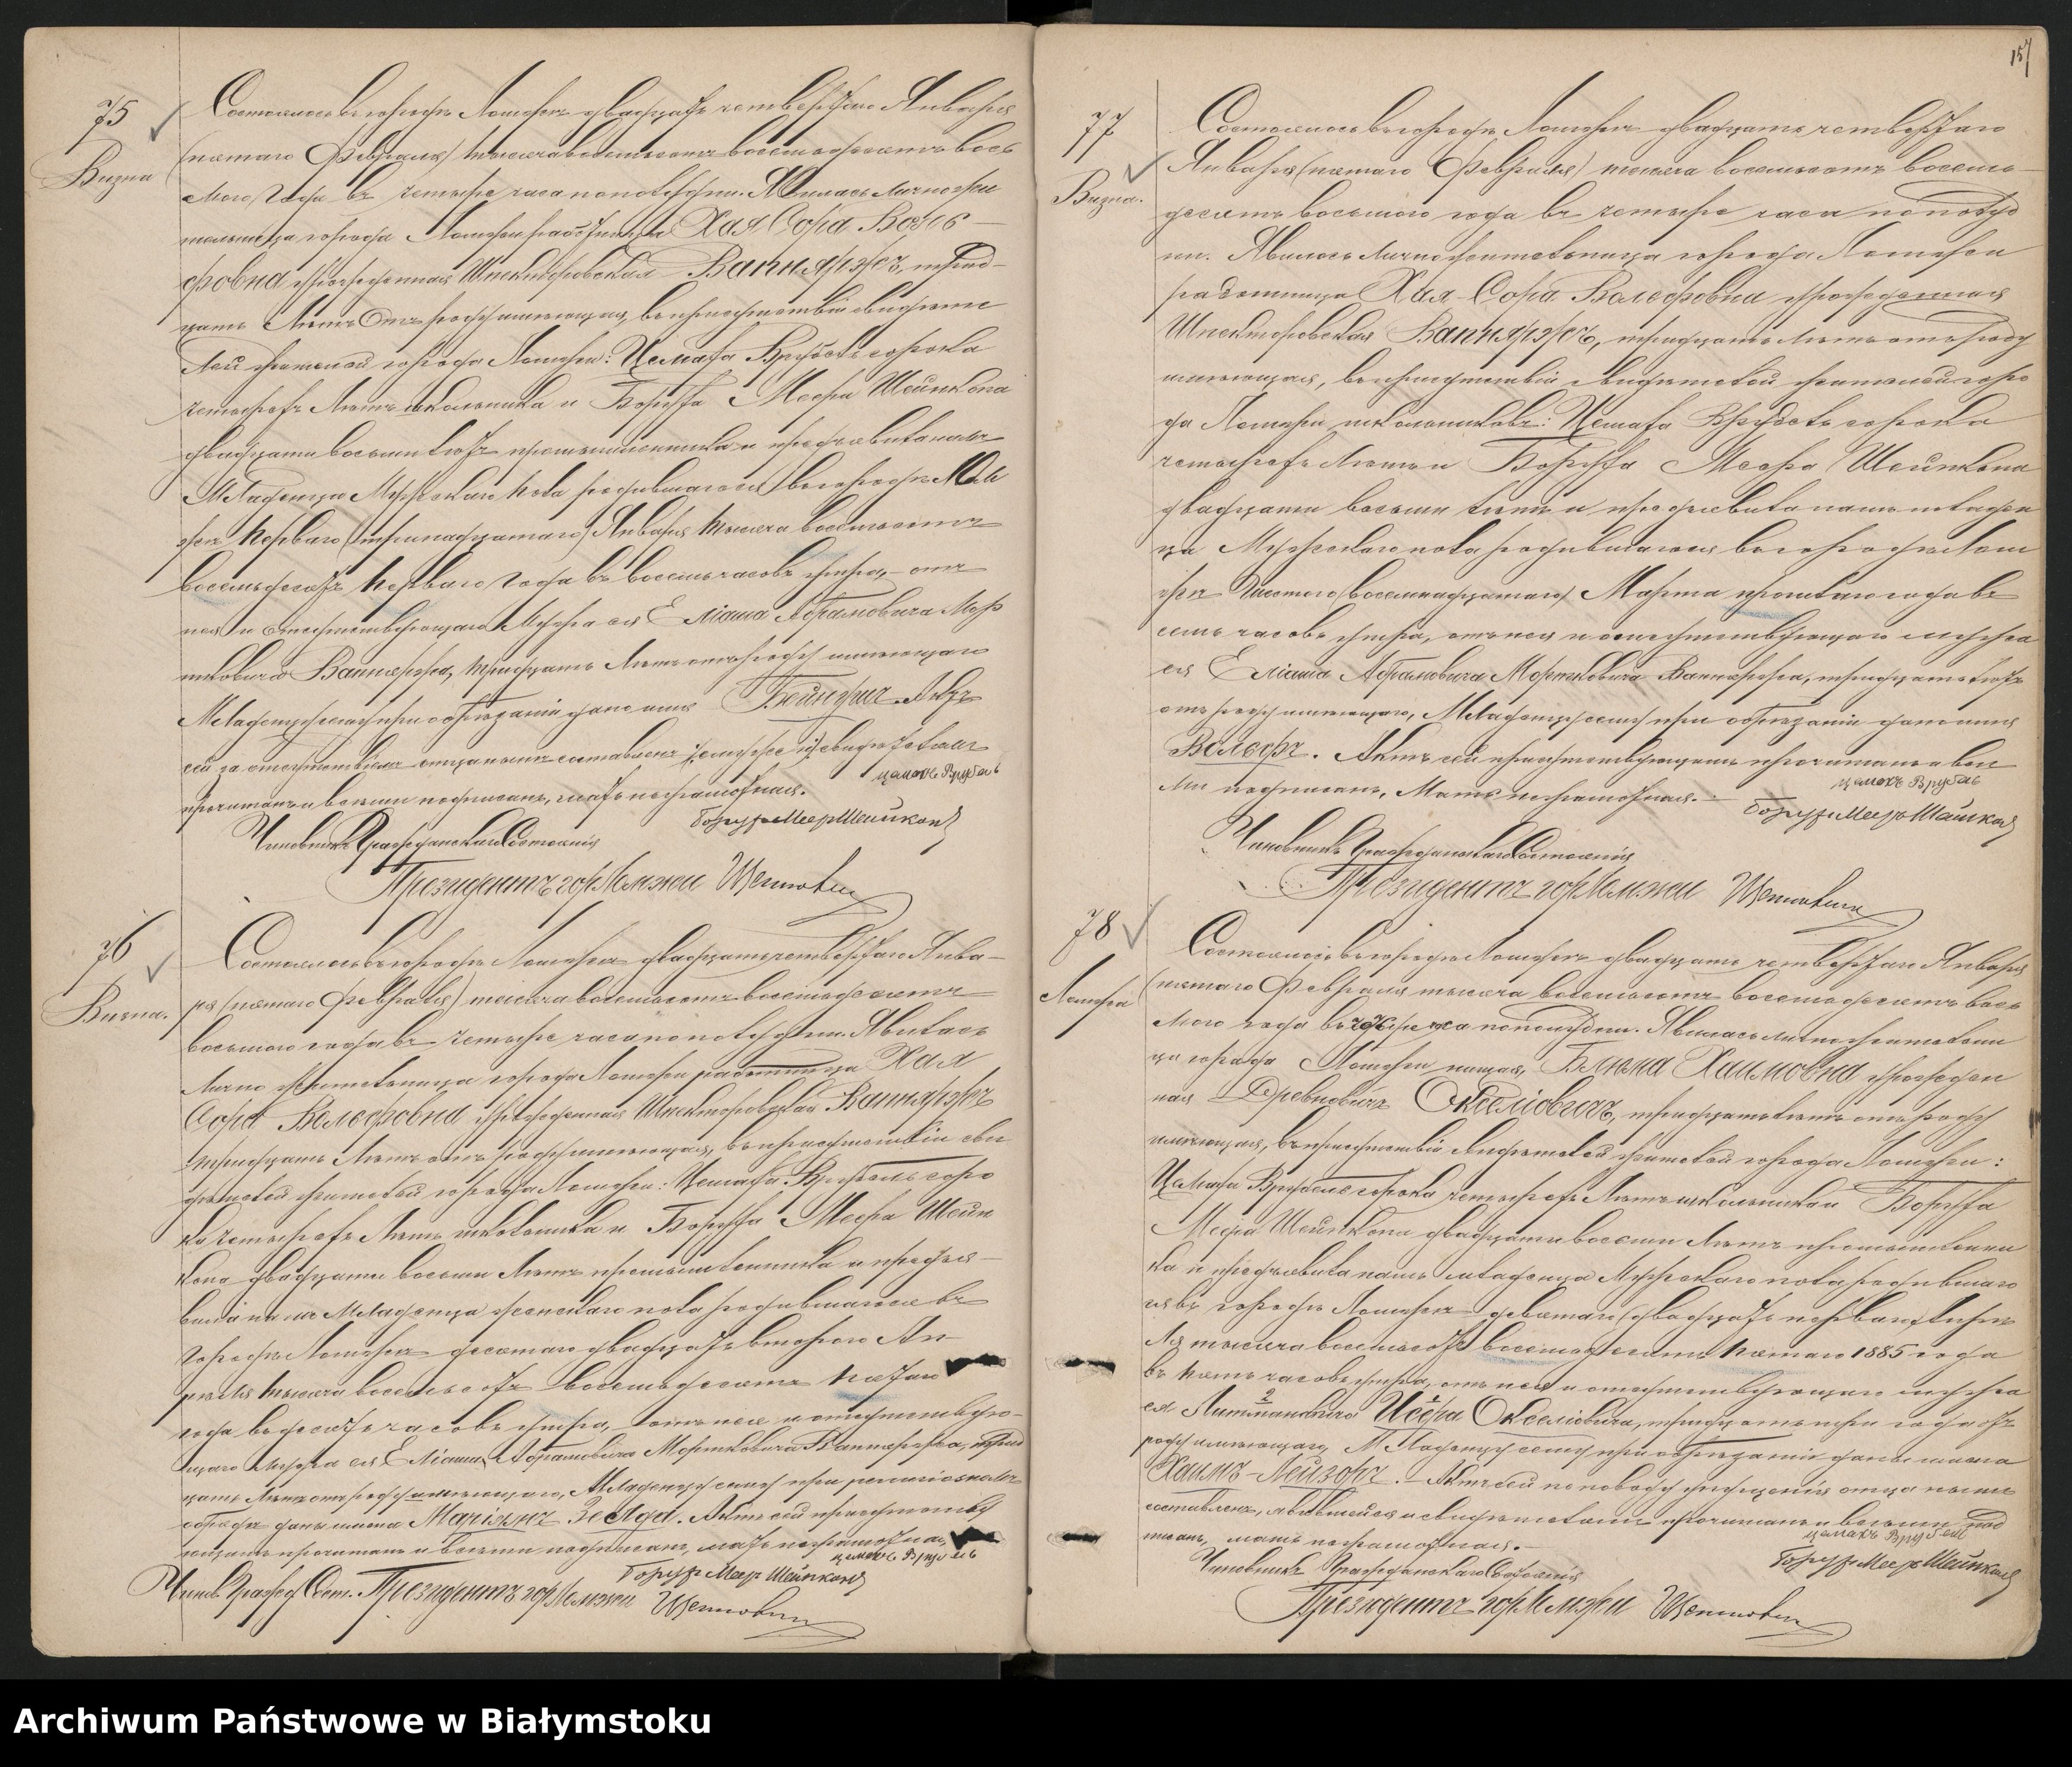 157
75
Визна
Состоялось въ городѣ Ломжѣ двадцать четвертаго Января
(пятаго Февраля) тысяча восемьсотъ восемьдесятъ вось
маго года въ четыре часа пополудни. Явилась лично жи
тельница города Ломжи работница Хая Сора Воль
фовна урожденная Шпекторовская Ваппяржъ, трид-
цать лѣтъ отъ роду имѣющая, въ присутствіи свидѣте
лей жителей города Ломжи: Цемаха Врубель сорока
четырехъ лѣтъ школьника и Боруха Меера Шейнкопа
двадцати восьми лѣтъ промышленника и предъявила намъ
младенца мужескаго пола родившагося въ городѣ Лом
жѣ перваго (тринадцатаго) Января тысяча восемьсотъ
восемьдесятъ перваго года въ восемь часовъ утра, отъ
нея и отсутствующаго мужа ея Еліаша Абрамовича Мор
тковича Ваппяржа, тридцать лѣтъ отъ роду имѣющаго
Младенцу сему при обрѣзаніи дано имя
прочитанъ и всѣми подписанъ, мать неграмотная.
Цемахъ Врубель
Борухъ Меер Шейнкопъ
Чиновникъ Гражданскаго Состоянія
Президентъ гор. Ломжи
76
Визна.
Состоялось въ городѣ Ломжѣ двадцать четвертаго Янва-
ря (пятаго Февраля) тысяча восемьсотъ восемьдесятъ
восьмаго года въ четыре часа пополудни. Явилась
лично жительница города Ломжи работница Хая
Сора Вольфовна урожденная Шпекторовская Ваппяржъ
тридцать лѣтъ отъ роду имѣющая, въ присутствіи сви
дѣтелей жителей города Ломжи: Цемаха Врубель соро
ка четырехъ лѣтъ школьника и Боруха Меера Шейн
копа двадцати восьми лѣтъ промышленника и предъя-
вила намъ младенца женскаго пола родившагося въ
городѣ Ломжѣ десятаго двадцать втораго Ап-
рѣля тысяча восемьсотъ восемьдесятъ пятаго
года въ десять часовъ утра, отъ нея и отсутствую-
щаго мужа ея Еліаша Абрамовича Мортковича Ваппяржа, трид
цать лѣтъ отъ роду имѣющаго, Младенцу сему при
даны имена Маріямъ Зелда. Актъ сей присутству
ющимъ прочитанъ и всѣми подписанъ, мать неграмотная
Цемахъ Врубель
Борухъ Меер Шейнкопъ
Чинов. Гражд. Сост. Президентъ гор. Ломжи
77
Визна.
Состоялось въ городѣ Ломжѣ двадцать четвертаго
Января (пятаго Февраля) тысяча восемьсотъ восемь
десятъ восьмаго года въ четыре часа пополуд
ни. Явилась лично жительница города Ломжи
работница Хая-Сора Вольфовна урожденная
Шпекторовская Ваппяржъ, тридцать лѣтъ отъ роду
имѣющая, въ присутствіи свидѣтелей жителей горо
да Ломжи школьниковъ: Цемаха Врубель сорока
четырехъ лѣтъ и Боруха Меера Шейнкопа
двадцати восьми лѣтъ и предъявила намъ младен
ца мужескаго пола родившагося въ городѣ Лом
жѣ шестого (восемнадцатаго) Марта прошлаго года въ
семь часовъ утра, отъ нея и отсутствующаго мужа
ея Еліаша Абрамовича Мортковича Ваппяржа, тридцать лѣтъ
отъ роду имѣющаго, Младенцу сему при обрѣзаніи дано имя
Вольфъ. Актъ сей присутствующимъ прочитанъ и всѣ
ми подписанъ, Мать неграмотная.
Цемахъ Врубель
Борухъ Меер Шейнкопъ
Чиновникъ Гражданскаго Состоянія
Президентъ гор. Ломжи
78
Ломжа
Состоялось въ городѣ Ломжѣ двадцать четвертаго Января
(пятаго Февраля тысяча восемьсотъ восемьдесятъ вось
маго года въ четыре часа пополудни. Явилась лично жительни
ца города Ломжи Хаимовна урожден
ная тридцать лѣтъ отъ роду
имѣющая, въ присутствіи свидѣтелей жителей города Ломжи:
Цемаха Врубель сорока четырехъ лѣтъ школьника и Боруха
Меера Шейнкопа двадцати восьми лѣтъ промышленни
ка и предъявила намъ младенца мужескаго пола родившаго
ся въ городѣ Ломжѣ девятаго (двадцать перваго)
тысяча восемьсотъ восемьдесятъ пятаго 1885 года
въ пять часовъ утра, отъ нея и отсутствующаго мужа
ея тридцать три года отъ
роду имѣющаго, Младенцу сему при обрѣзаніи даны имена
Хаимъ-Лейзоръ. Актъ сей по поводу отца ныне
составленъ, явившейся и свидѣтелямъ прочитанъ и всѣми под
писанъ, мать неграмотная.
Цемахъ Врубель
Борухъ Меер Шейнкопъ
Чиновникъ Гражданскаго Состоянія
Президентъ гор. Ломжи
Archiwum Państwowe w Białymstoku